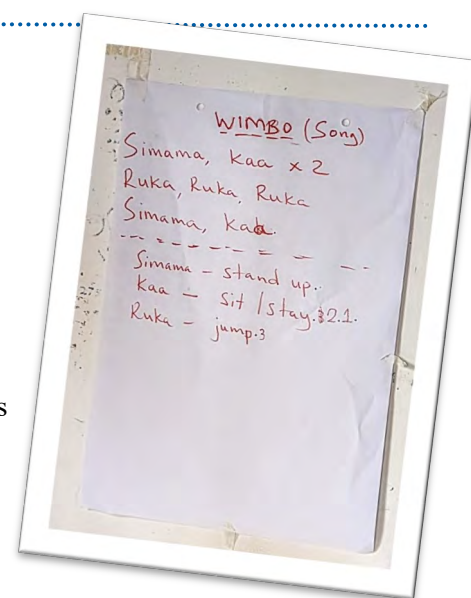 WIMBO (Song)
Simama, Kaa x 2
Ruka, Ruka, Ruka
Simama, Kaa.
Simama – stand up.
Kaa – Sit / stay.32.1.
Ruka – jump.3
s